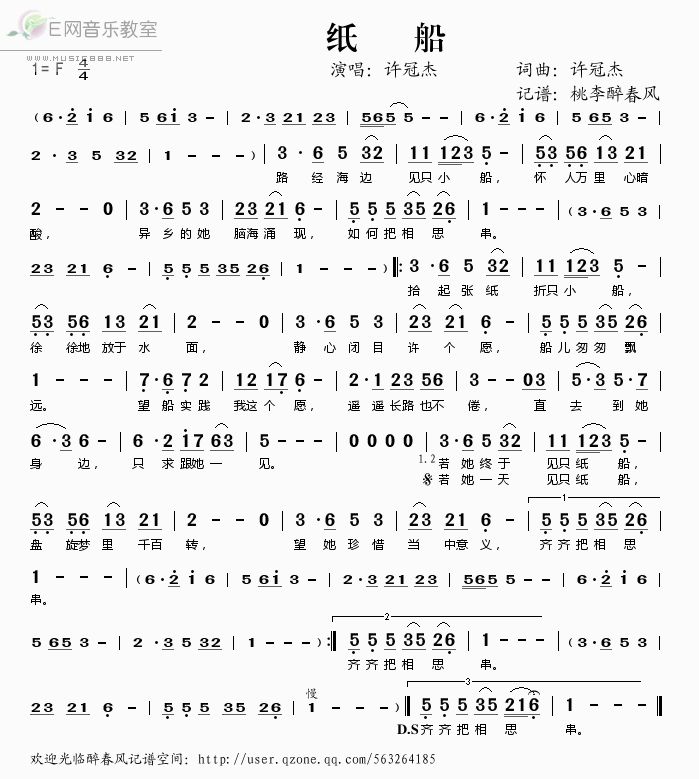 E网音乐教室
WWW.MUSIC888.NET
纸 船
1=F 4/4
演唱：许冠杰 词曲：许冠杰
记谱：桃李醉春风
(6·2 i 6 | 5 6i 3 - | 2·3 21 23 | 565 5 - - | 6·2 i 6 | 5 65 3 - |
2·3 5 32 | 1 - - -) | 3·6 5 32 | 11 123 5 - | 53 56 13 21 |
路 经 海 边 见只 小 船， 怀 人万 里 心暗
2 - - 0 | 3·6 5 3 | 23 21 6 - | 5 5 5 35 26 | 1 - - - | (3·6 5 3 |
酸， 异 乡 的 她 脑海 涌 现， 如 何 把 相 思 串。
23 21 6 - | 5 5 5 35 26 | 1 - - -) ‖: 3·6 5 32 | 11 123 5 - |
拾 起 张 纸 折只 小 船，
53 56 13 21 | 2 - - 0 | 3·6 5 3 | 23 21 6 - | 5 5 5 35 26 |
徐 徐地 放于 水 面， 静 心 闭 目 许 个 愿， 船 儿 匆 匆 飘
1 - - - | 7·6 7 2 | 12 17 6 - | 2·1 23 56 | 3 - - 03 | 5·3 5·7 |
远。 望 船 实 践 我这 个 愿， 遥 遥 长路 也不 倦， 直 去 到 她
6·3 6 - | 6·2 17 63 | 5 - - - | 0 0 0 0 | 3·6 5 32 | 11 123 5 - |
身 边， 只 求 跟她 一 见。 1.2 若 她 终 于 见只 纸 船，
𝄋若 她 一 天 见只 纸 船，
1
53 56 13 21 | 2 - - 0 | 3·6 5 3 | 23 21 6 - | 5 5 5 35 26 |
盘 旋梦 里 千百 转， 望 她 珍 惜 当 中意 义， 齐 齐 把 相 思
1 - - - | (6·2 i 6 | 5 6i 3 - | 2·3 21 23 | 565 5 - - | 6·2 i 6 |
串。
2
5 65 3 - | 2·3 5 32 | 1 - - -) :‖ 5 5 5 35 26 | 1 - - - | (3·6 5 3 |
齐 齐 把 相 思 串。
慢 3
23 21 6 - | 5 5 5 35 26 | 1 - - -) ‖ 5 5 5 35 216 | 1 - - - ‖
D.S 齐 齐 把 相 思 串。
欢迎光临醉春风记谱空间：http://user.qzone.qq.com/563264185